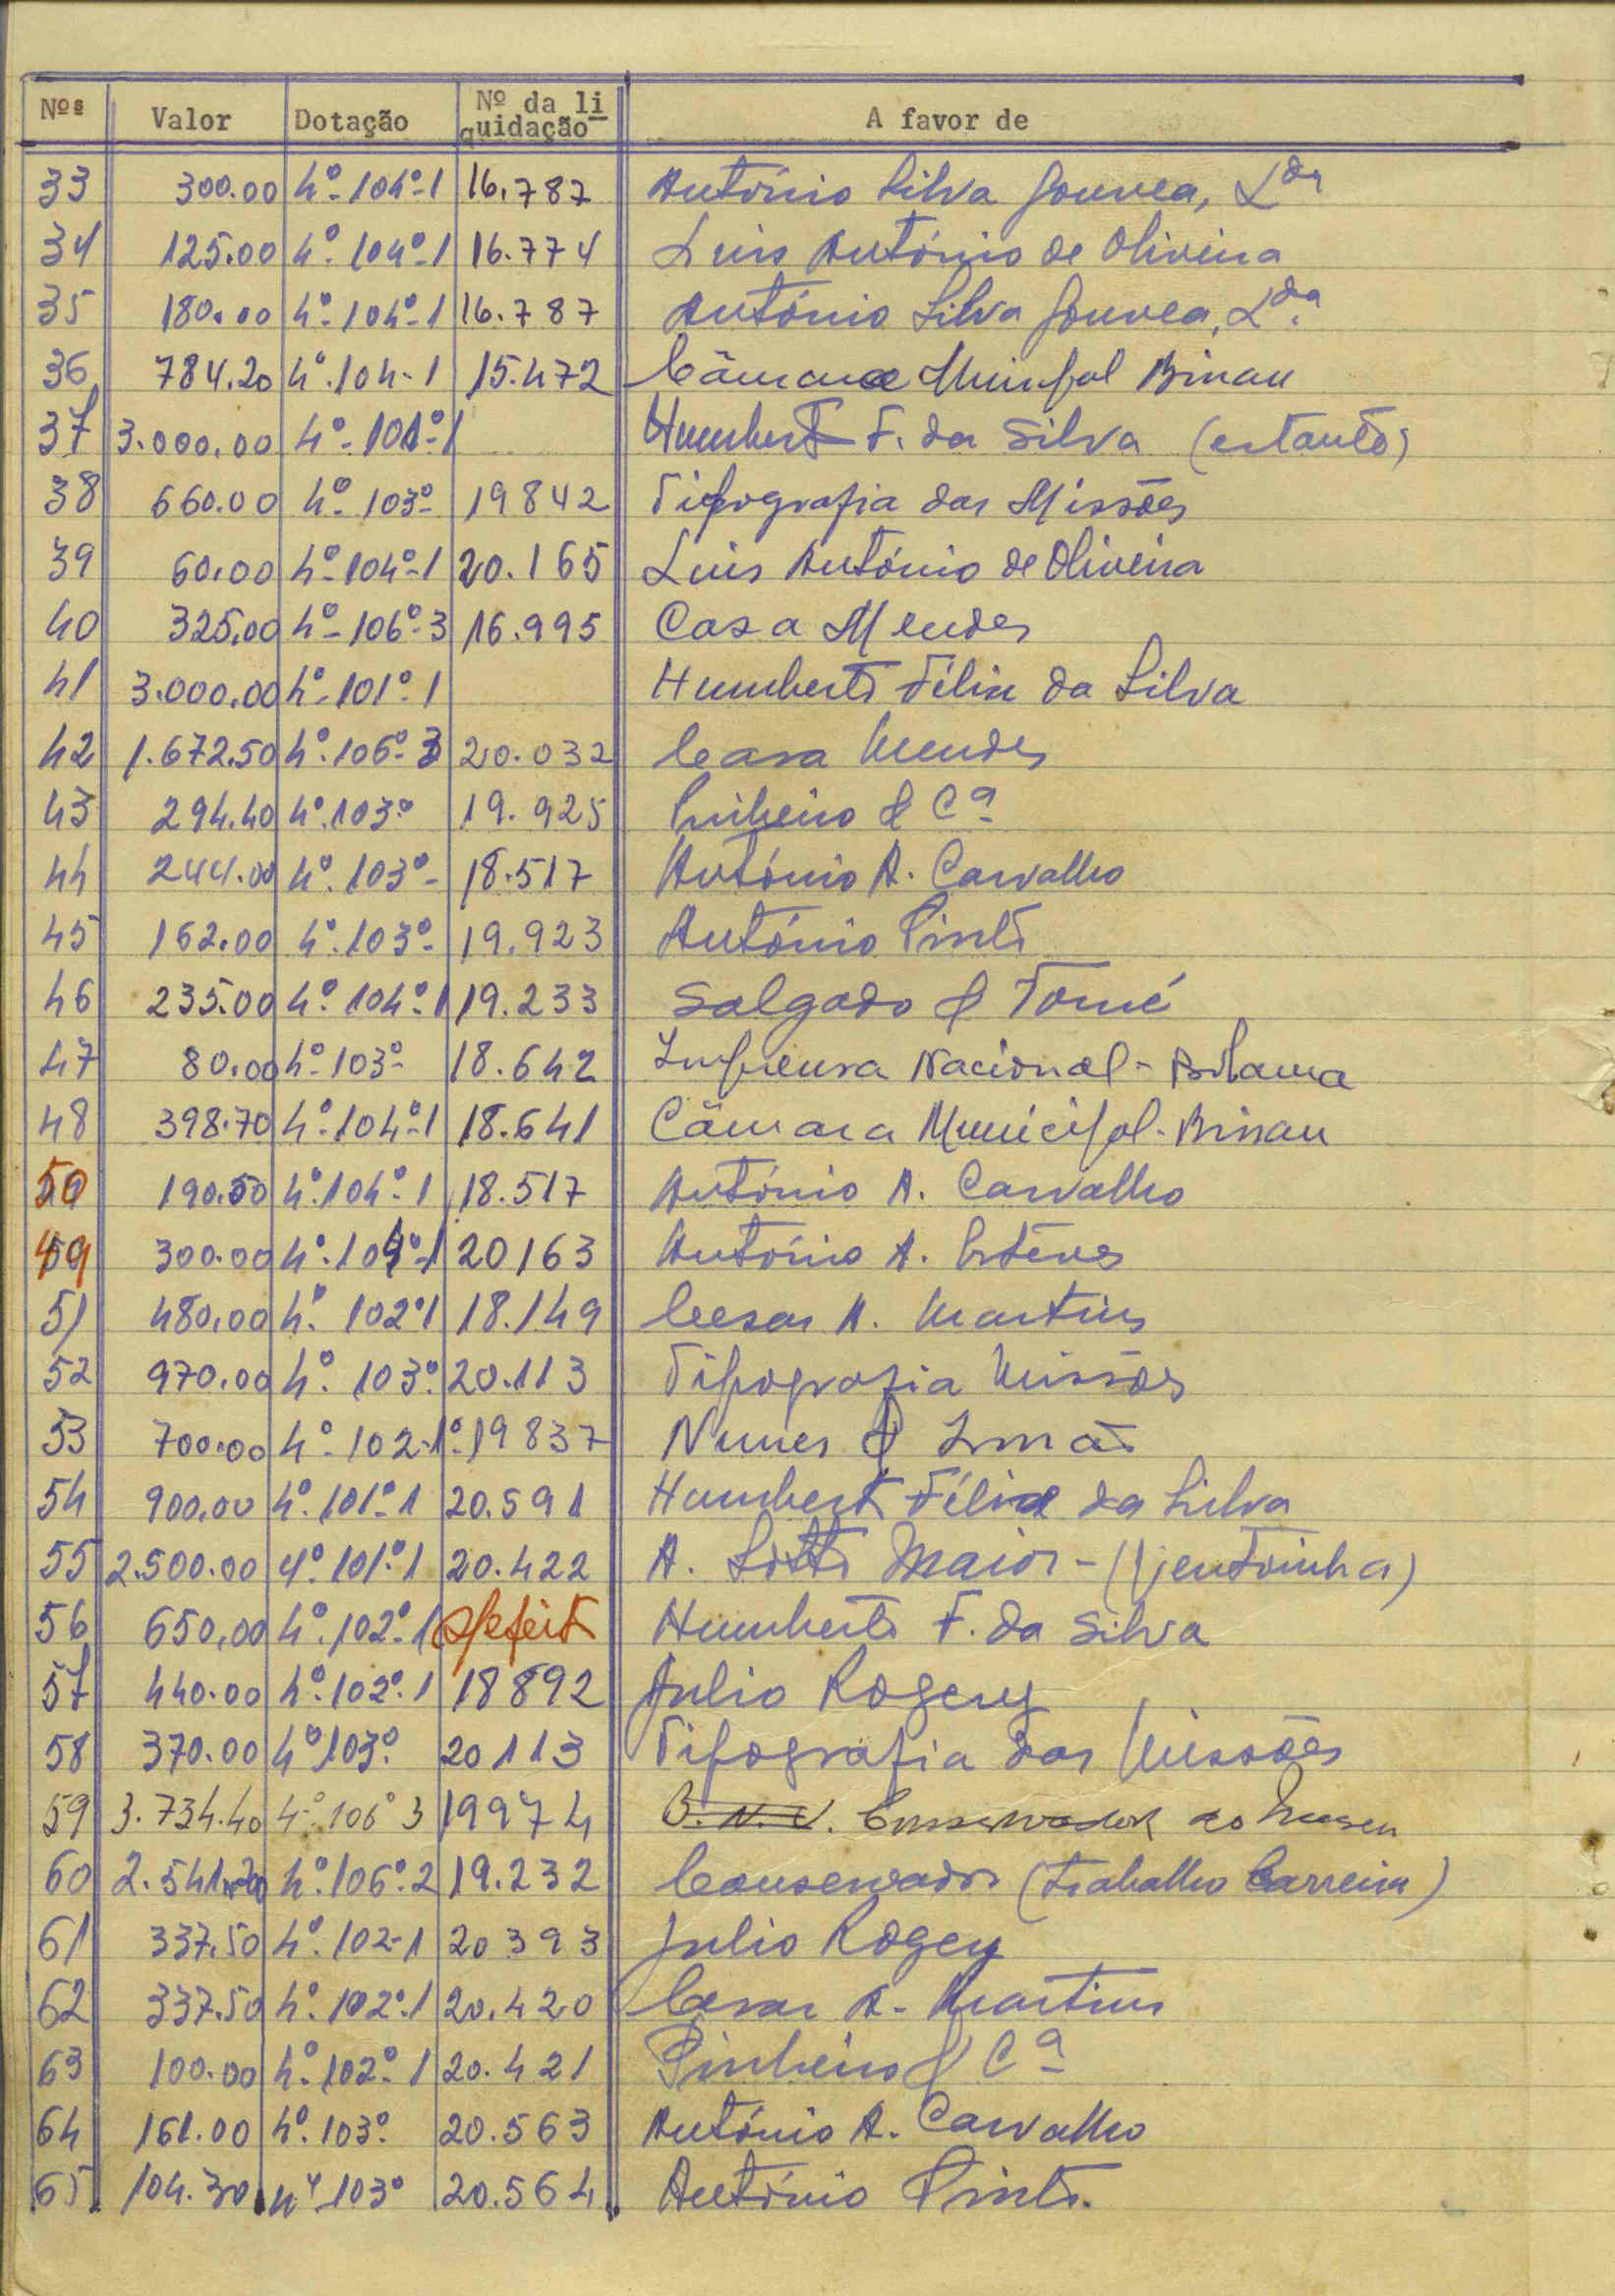 Nºs Valor Dotação Nº da liquidação A favor de
33 300.00 4º-104º-1 16.787 António Silva Gouvea, Lda
34 125.00 4º-104º-1 16.774 Luis António de Oliveira
35 180.00 4º-104º-1 16.787 António Silva Gouvea, Lda.
36 784.20 4º.104-1 15.472 Câmara Municipal Bissau
37 3.000.00 4º-101º-1 Humberto F. da Silva (estante)
38 660.00 4º-103º- 19842 Tipografia das Missões
39 60.00 4º-104º-1 20.165 Luis António de Oliveira
40 325.00 4º-106º-3 16.995 Casa Mendes
41 3.000.00 4º-101º-1 Humberto Félix da Silva
42 1.672.50 4º.106º-3 20.032 Casa Mendes
43 294.40 4º.103º 19.925 Pinheiro & Cª
44 244.00 4º.103º- 18.517 António A. Carvalho
45 162.00 4º.103º- 19.923 António Pinto
46 235.00 4º.104º-1 19.233 Salgado & Tomé
47 80.00 4º-103º- 18.642 Imprensa Nacional - Bolama
48 398.70 4º-104º-1 18.641 Câmara Municipal - Bissau
50 190.50 4º.104º-1 18.517 António A. Carvalho
49 300.00 4º.104º-1 20163 António A. Esteves
51 480.00 4º. 102º1 18.149 Cesar A. Martins
52 970.00 4º. 103º. 20.113 Tipografia Missões
53 700.00 4º. 102-1º. 19837 Nunes & Irmão
54 900.00 4º.101º-1 20.591 Humberto Félix da Silva
55 2.500.00 4º.101º.1 20.422 A. Sotto Maior - (Ventoinha)
56 650.00 4º.102º.1 Humberto F. da Silva
57 440.00 4º.102º.1 18892 Julio Rogery
58 370.00 4º103º. 20113 Tipografia das Missões
59 3.734.40 4º.106º3 19974 B.N.U. Conservador do Museu
60 2.541.20 4º.106º.2 19.232 Conservador (trabalho Carreira)
61 337.50 4º.102-1 20393 Julio Rogery
62 337.50 4º.102º.1 20.420 Cesar A. Martins
63 100.00 4º.102º.1 20.421 Pinheiro & Cª
64 161.00 4º.103º. 20.563 António A. Carvalho
65 104.30 4º103º 20.564 António Pinto.